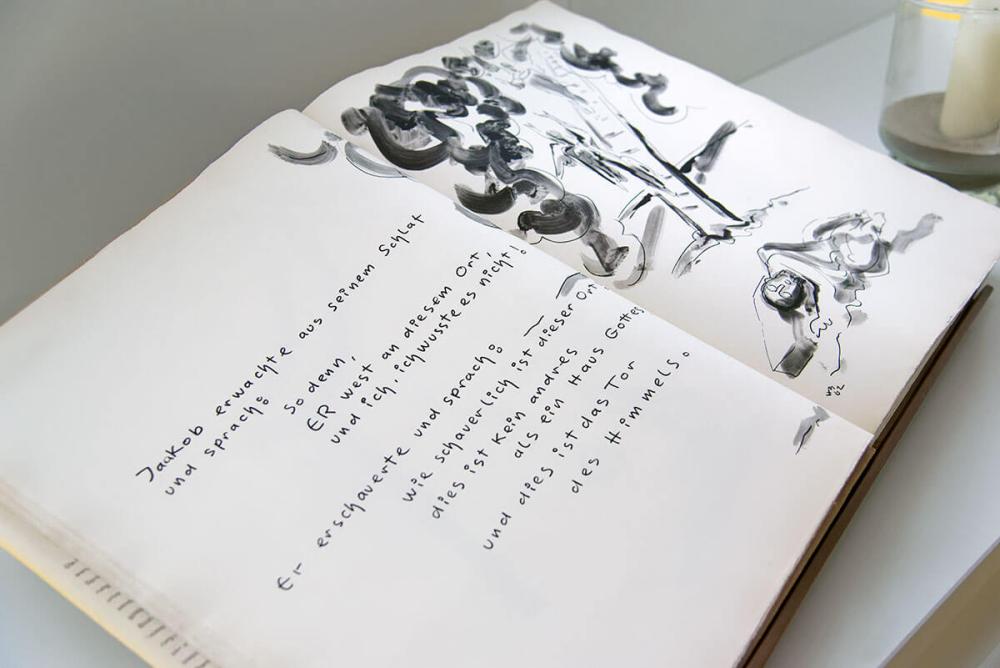 Jaakob erwachte aus seinem Schlaf
und sprach:
so denn,
ER west an diesem Ort,
und ich, ich wusste es nicht!
Er erschauerte und sprach:
wie schauerlich ist dieser Ort
dies ist kein andres
als ein Haus Gottes
und dies ist das Tor
des Himmels.